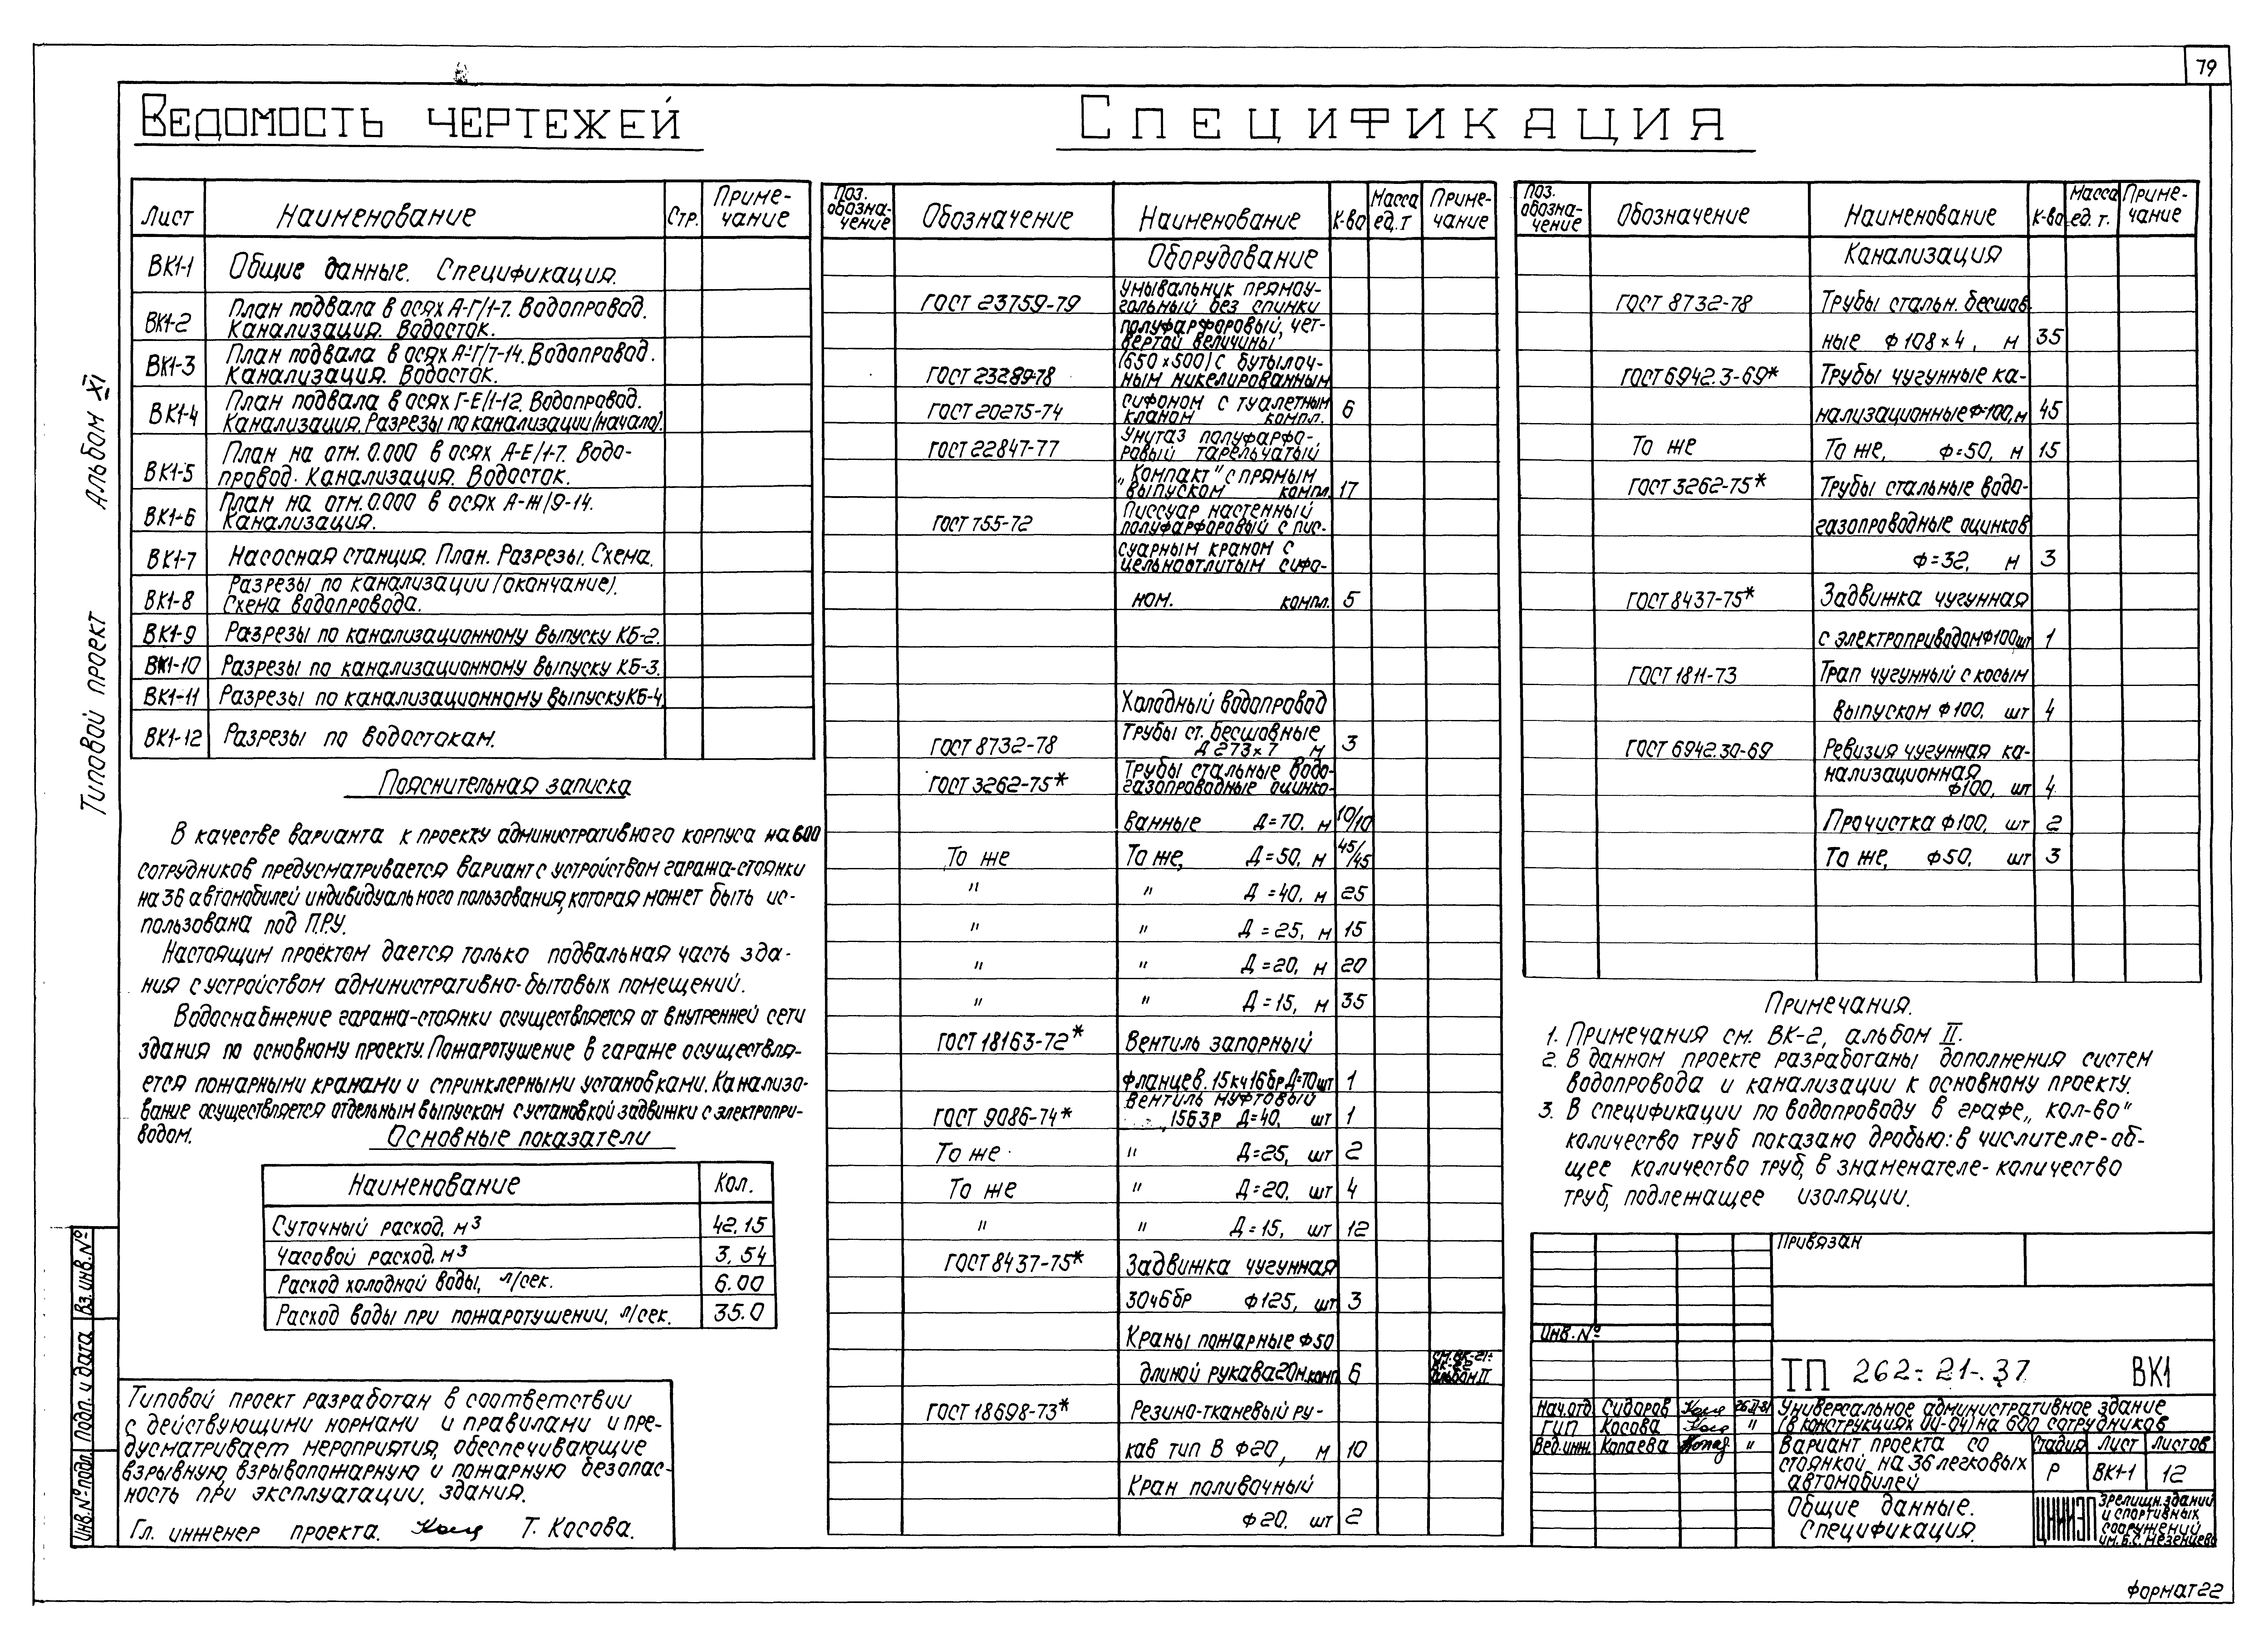 79
Ведомость чертежей
Лист Наименование Стр. Приме-
чание
ВК1-1 Общие данные. Спецификация.
ВК1-2 План подвала в осях А-Г/1-7. Водопровод.
Канализация. Водосток.
ВК1-3 План подвала в осях А-Г/7-14. Водопровод.
Канализация. Водосток.
ВК1-4 План подвала в осях Г-Е/1-12. Водопровод.
Канализация. Разрезы по канализации (начало).
ВК1-5 План на отм. 0.000 в осях А-Е/1-7. Водо-
провод. Канализация. Водосток.
ВК1-6 План на отм. 0.000 в осях А-Ж/9-14.
Канализация.
ВК1-7 Насосная станция. План. Разрезы. Схема.
ВК1-8 Разрезы по канализации (окончание).
Схема водопровода.
ВК1-9 Разрезы по канализационному выпуску КБ-2.
ВК1-10 Разрезы по канализационному выпуску КБ-3.
ВК1-11 Разрезы по канализационному выпуску КБ-4.
ВК1-12 Разрезы по водостокам.
Пояснительная записка
В качестве варианта к проекту административного корпуса на 600
сотрудников предусматривается вариант с устройством гаража-стоянки
на 36 автомобилей индивидуального пользования, которая может быть ис-
пользована под П.Р.У.
Настоящим проектом дается только подвальная часть зда-
ния с устройством административно-бытовых помещений.
Водоснабжение гаража-стоянки осуществляется от внутренней сети
здания по основному проекту. Пожаротушение в гараже осуществля-
ется пожарными кранами и спринклерными установками. Канализо-
вание осуществляется отдельным выпуском с установкой задвижки с электропри-
водом.
Основные показатели
Наименование Кол.
Суточный расход, м³ 42.15
Часовой расход, м³ 3,54
Расход холодной воды, л/сек. 6.00
Расход воды при пожаротушении, л/сек. 35.0
Типовой проект разработан в соответствии
с действующими нормами и правилами и пре-
дусматривает мероприятия, обеспечивающие
взрывную, взрывопожарную и пожарную безопас-
ность при эксплуатации здания.
Гл. инженер проекта. Т. Косова.
Типовой проект Альбом XI
Инв. № подл. Подп. и дата Вз. инв. №
Спецификация
Поз.
обозна-
чение Обозначение Наименование К-во Масса
ед. т Приме-
чание
Оборудование
ГОСТ 23759-79 Умывальник прямоу-
гольный без спинки
полуфарфоровый, чет-
вертой величины
(650 х 500) с бутылоч-
ГОСТ 23289-78 ным никелированным
сифоном с туалетным
ГОСТ 20275-74 кланом компл. 6
Унитаз полуфарфо-
ГОСТ 22847-77 ровый тарельчатый
„Компакт" с прямым
выпуском компл. 17
Писсуар настенный
ГОСТ 755-72 полуфарфоровый с пис-
суарным краном с
цельноотлитым сифо-
ном. компл. 5
Холодный водопровод
Трубы ст. бесшовные
ГОСТ 8732-78 Д 273х7 м 3
Трубы стальные водо-
ГОСТ 3262-75* газопроводные оцинко-
ванные Д=70, м 10/10
То же То же, Д=50, м 45/45
" " Д=40, м 25
" " Д=25, м 15
" " Д=20, м 20
" " Д=15, м 35
ГОСТ 18163-72* Вентиль запорный
фланцев. 15кч16бр Д=70 шт 1
Вентиль муфтовый
ГОСТ 9086-74* 15б3р Д=40, шт 1
То же " Д=25, шт 2
То же " Д=20, шт 4
" " Д=15, шт 12
ГОСТ 8437-75* Задвижка чугунная
30ч6бр ф125, шт 3
Краны пожарные ф50
длиной рукава 20м. комп 6 см. ВК-21÷
ВК-22
альбом II
ГОСТ 18698-73* Резино-тканевый ру-
кав тип В ф20, м 10
Кран поливочный
ф20, шт 2
Поз.
обозна-
чение Обозначение Наименование К-во Масса
ед. т. Приме-
чание
Канализация
ГОСТ 8732-78 Трубы стальн. бесшов-
ные ф 108х4, м 35
ГОСТ 6942.3-69* Трубы чугунные ка-
нализационные ф=100, м 45
То же То же, ф=50, м 15
ГОСТ 3262-75* Трубы стальные водо-
газопроводные оцинков
ф=32, м 3
ГОСТ 8437-75* Задвижка чугунная
с электроприводом ф100 шт 1
ГОСТ 1811-73 Трап чугунный с косым
выпуском ф100, шт 4
ГОСТ 6942.30-69 Ревизия чугунная ка-
нализационная
ф100, шт 4
Прочистка ф100, шт 2
То же, ф50, шт 3
Примечания.
1. Примечания см. ВК-2, альбом II.
2. В данном проекте разработаны дополнения систем
водопровода и канализации к основному проекту.
3. В спецификации по водопроводу в графе „кол-во"
количество труб показано дробью: в числителе-об-
щее количество труб, в знаменателе-количество
труб, подлежащее изоляции.
Привязан
Инв. №
ТП 262-21-37 ВК1
Нач. отд Сидоров
ГИП Косова "
Вед. инж. Копаева "
Универсальное административное здание
(в конструкциях ИИ-04) на 600 сотрудников
Вариант проекта со
стоянкой на 36 легковых
автомобилей
Стадия Лист Листов
Р ВК1-1 12
Общие данные.
Спецификация.
ЦНИИЭП зрелищн. зданий
и спортивных
сооружений
им. Б.С. Мезенцева
Формат 22